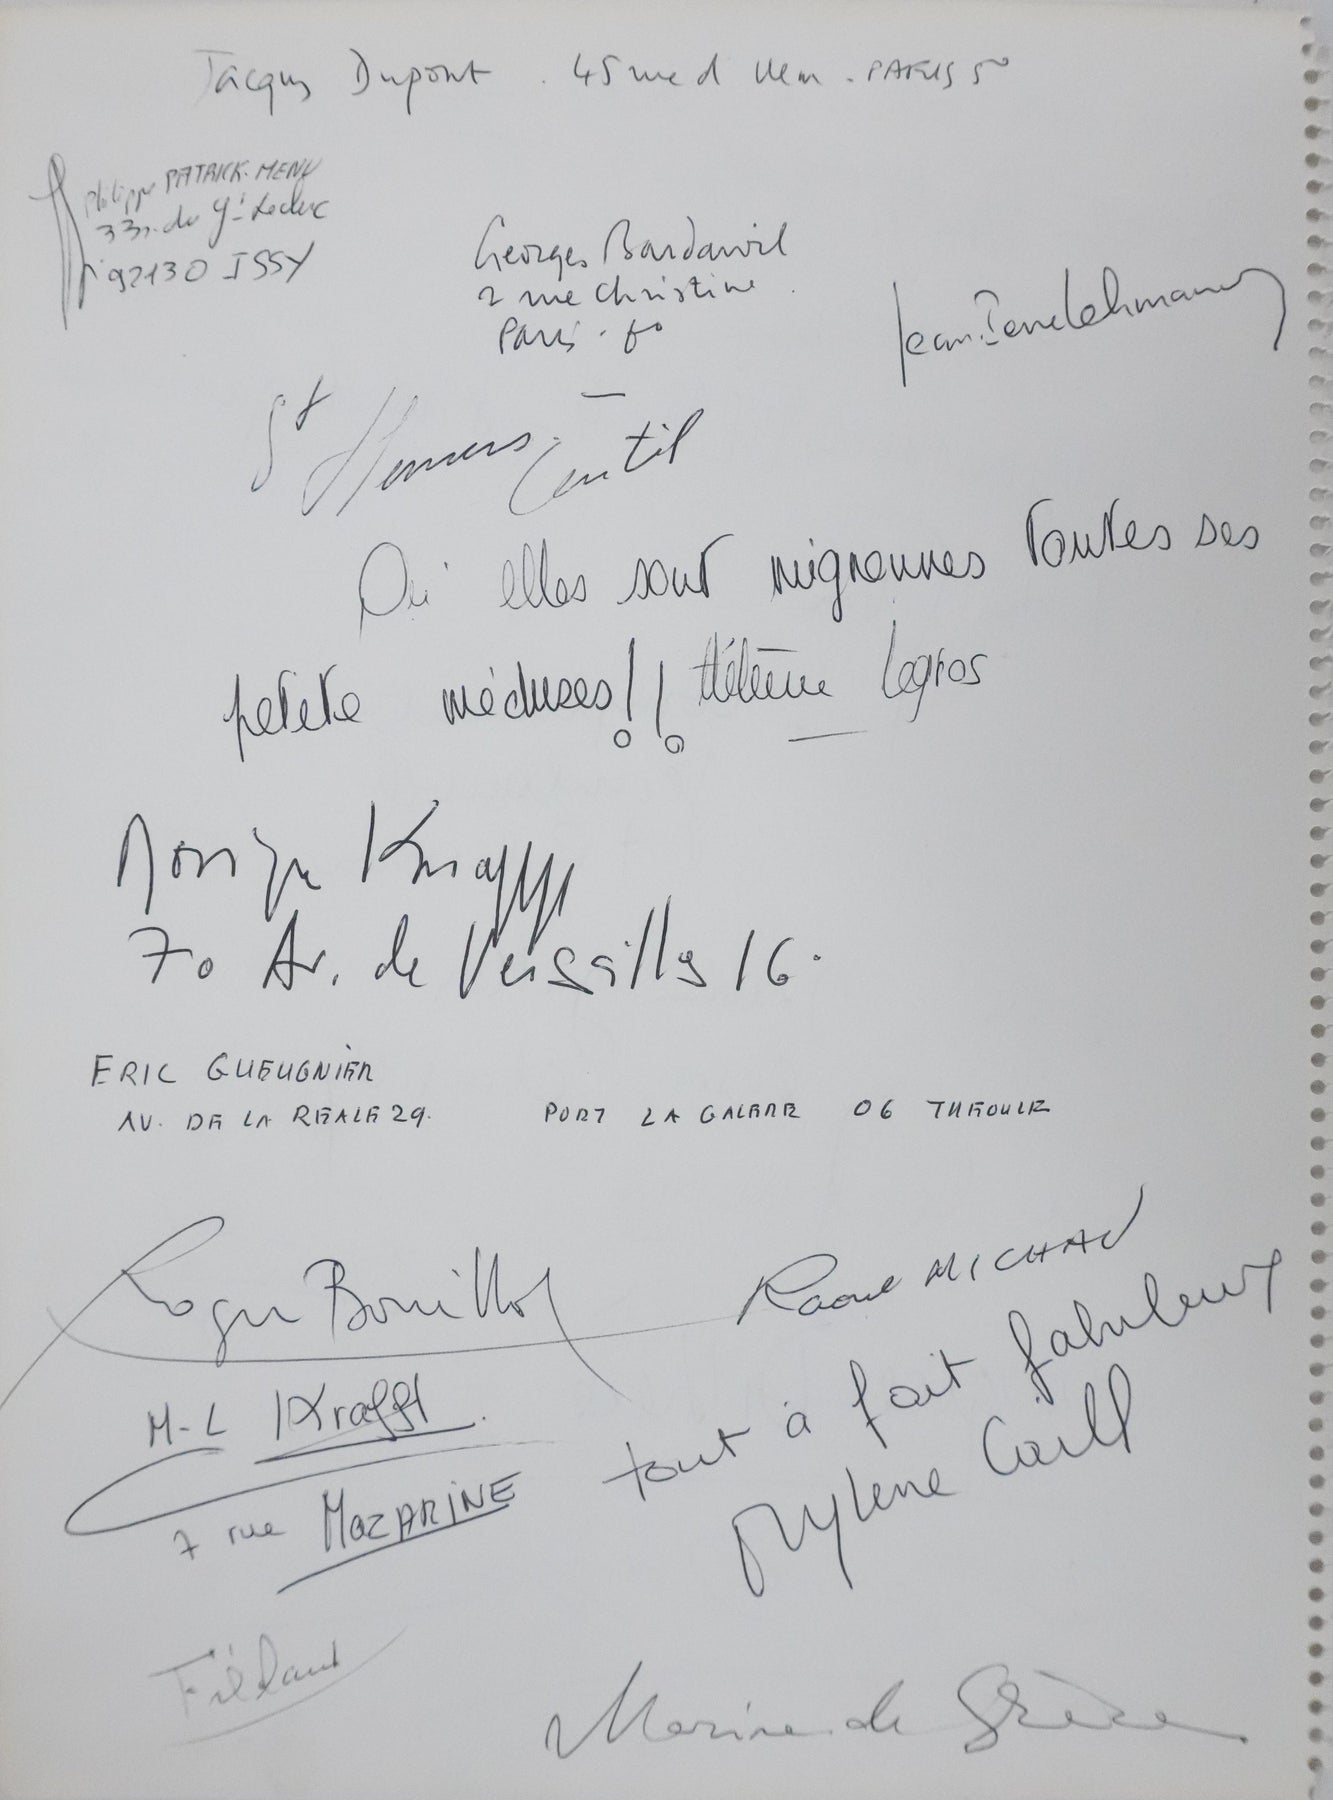 Jacques Dupont . 45 rue d'Ulm . PARIS 5e
Philippe PATRICK-MENU
33 r. du Gl Leclerc
92130 ISSY
Georges Bardawil
2 rue Christine
Paris . 6e
Jean-Pierre Lehmann
St
Oui elles sont mignonnes toutes ses
petete méduses!! Hélène Legros
Monique Knapp
70 Av. de Versailles 16.
ERIC GUEUGNIER
AV. DE LA REALE 29. PORT LA GALERE 06 THEOULE
Roger Bouillot
Raoul MICHAU
M-L Krafft
tout à fait fabuleux
7 rue MAZARINE
Mylene
Marina de Grèce